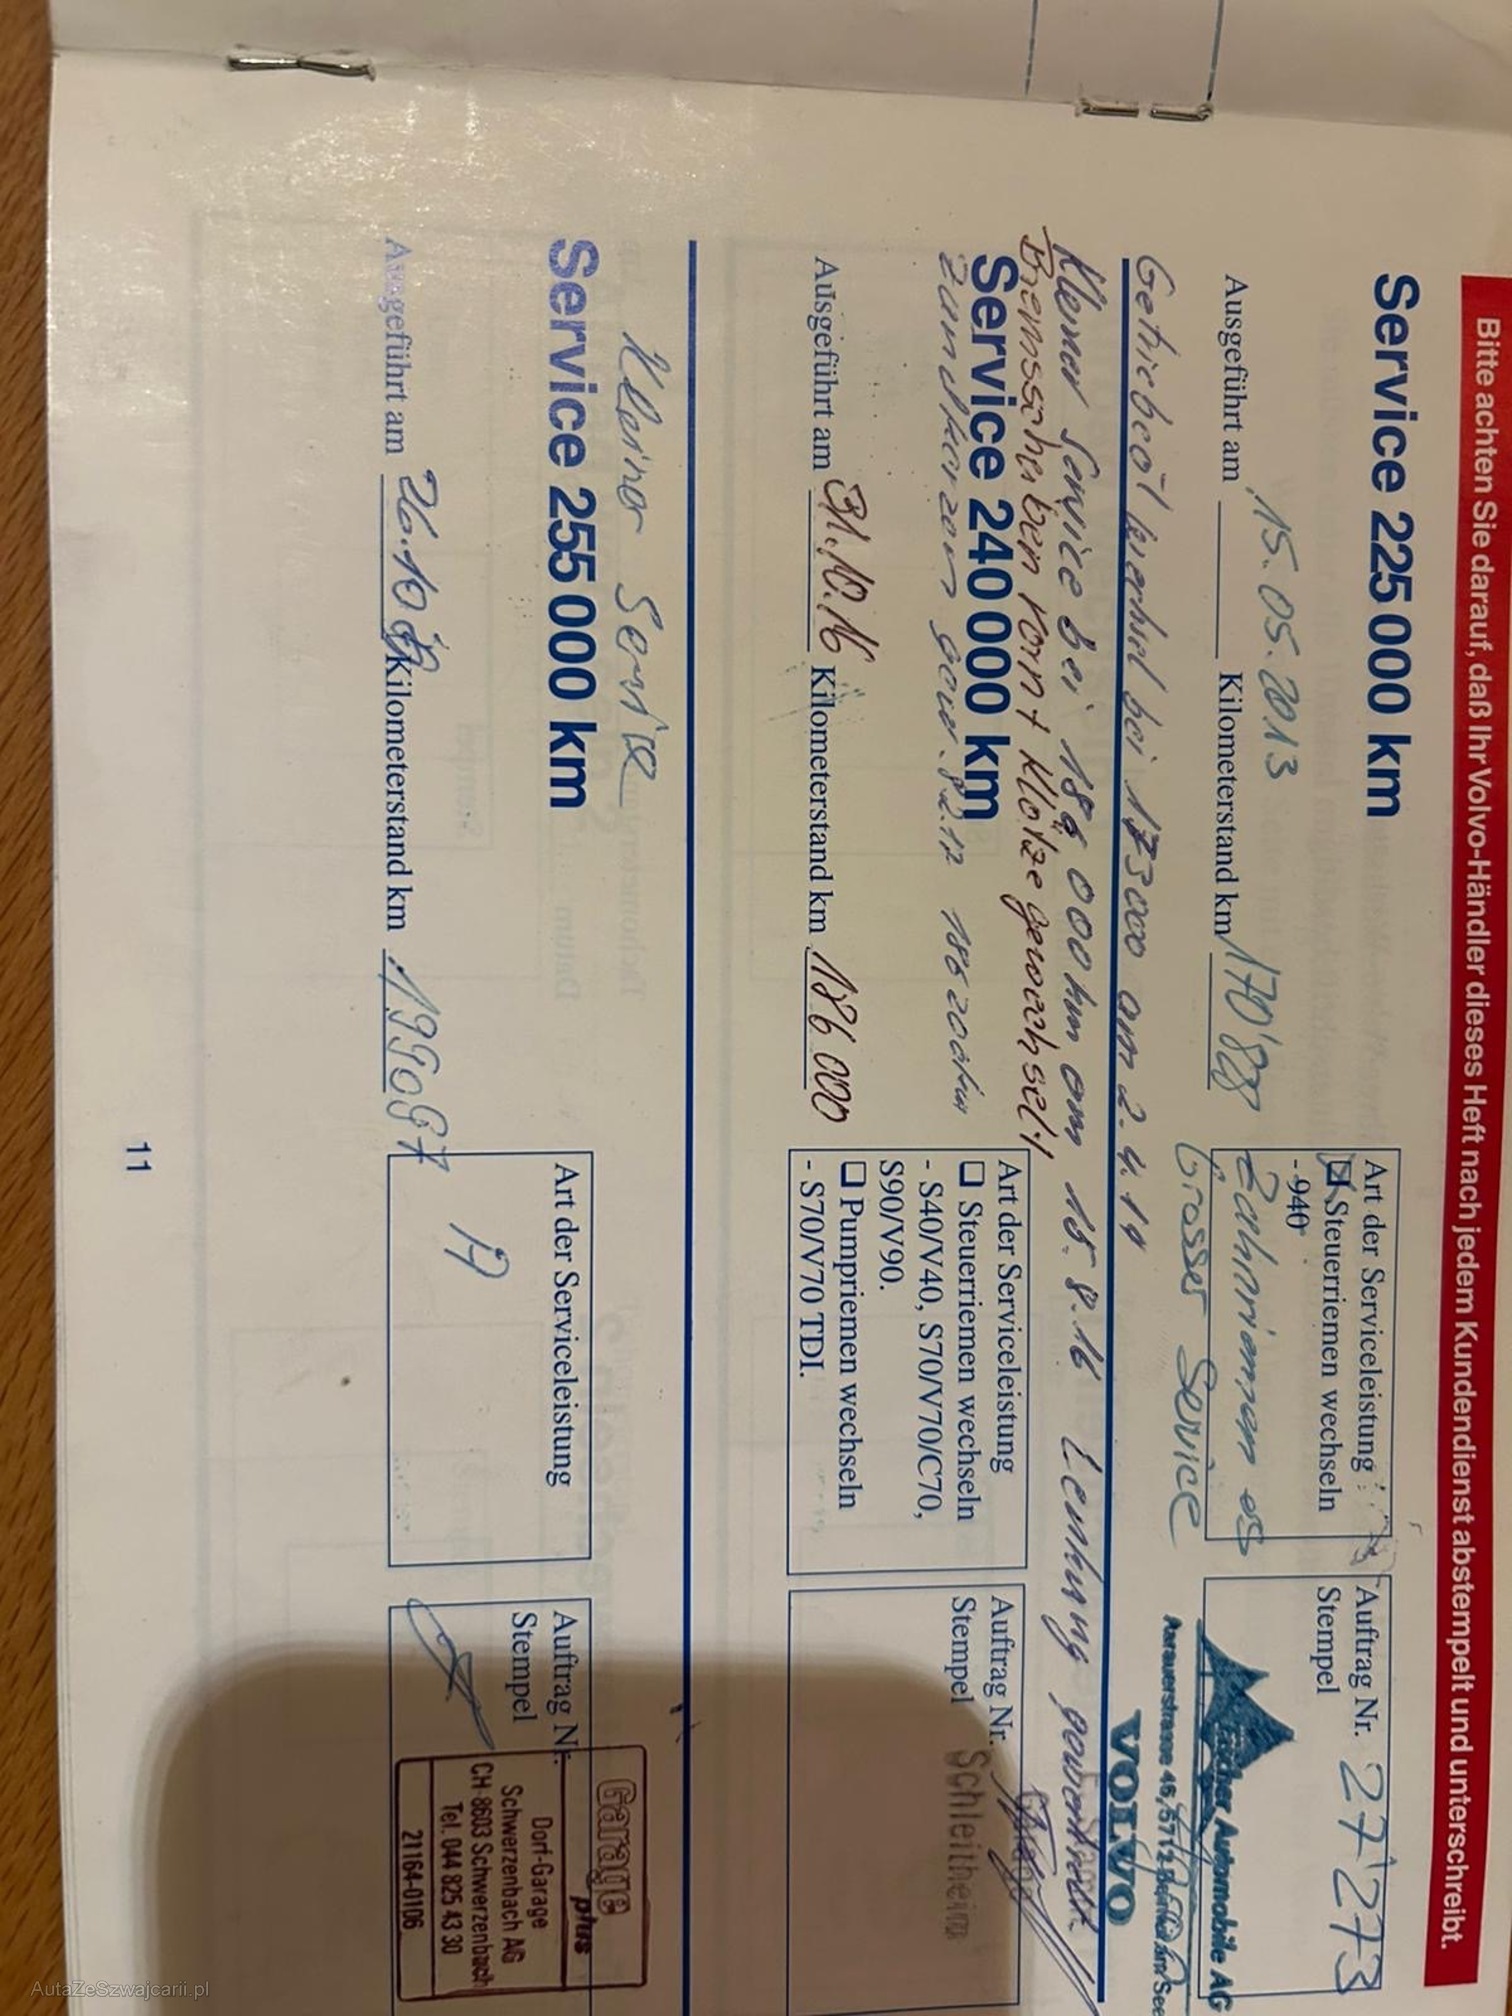 Bitte achten Sie darauf, daß Ihr Volvo-Händler dieses Heft nach jedem Kundendienst abstempelt und unterschreibt.
Service 225 000 km
15.05.2013
Ausgeführt am
Kilometerstand km 170'828
Art der Serviceleistung
Steuerriemen wechseln
- 940
Zahnriemen
Grosser Service
Auftrag Nr. 27'273
Stempel
Automobile AG
VOLVO
Getriebeöl bei 173000 am 2.4.14
Kleiner Service bei 186 000 km am 15.8.16 Lenkung
Bremsscheiben vorn + Klötze gewechselt
Service 240 000 km
Zündkerzen 186 200 km
Ausgeführt am 31.10.16 Kilometerstand km 186 000
Art der Serviceleistung
❑ Steuerriemen wechseln
- S40/V40, S70/V70/C70,
S90/V90.
❑ Pumpriemen wechseln
- S70/V70 TDI.
Auftrag Nr.
Stempel
Schleitheim
Kleiner Service
Service 255 000 km
Ausgeführt am 26.10 Kilometerstand km
Art der Serviceleistung
Auftrag Nr.
Stempel
Garage
plus
Dorf-Garage
Schwerzenbach AG
CH-8603 Schwerzenbach
Tel. 044 825 43 30
21164-0106
11
AutaZeSzwajcarii.pl